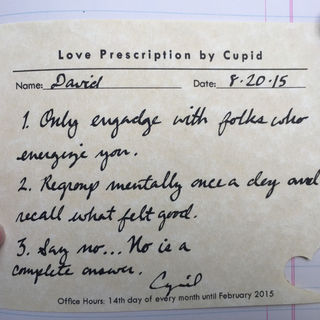 Love Prescription by Cupid
Name: David Date: 8·20·15
1. Only engadge with folks who
energize you.
2. Regroup mentally once a day and
recall what felt good.
3. Say no... No is a
complete answer.
Cupid
Office Hours: 14th day of every month until February 2015